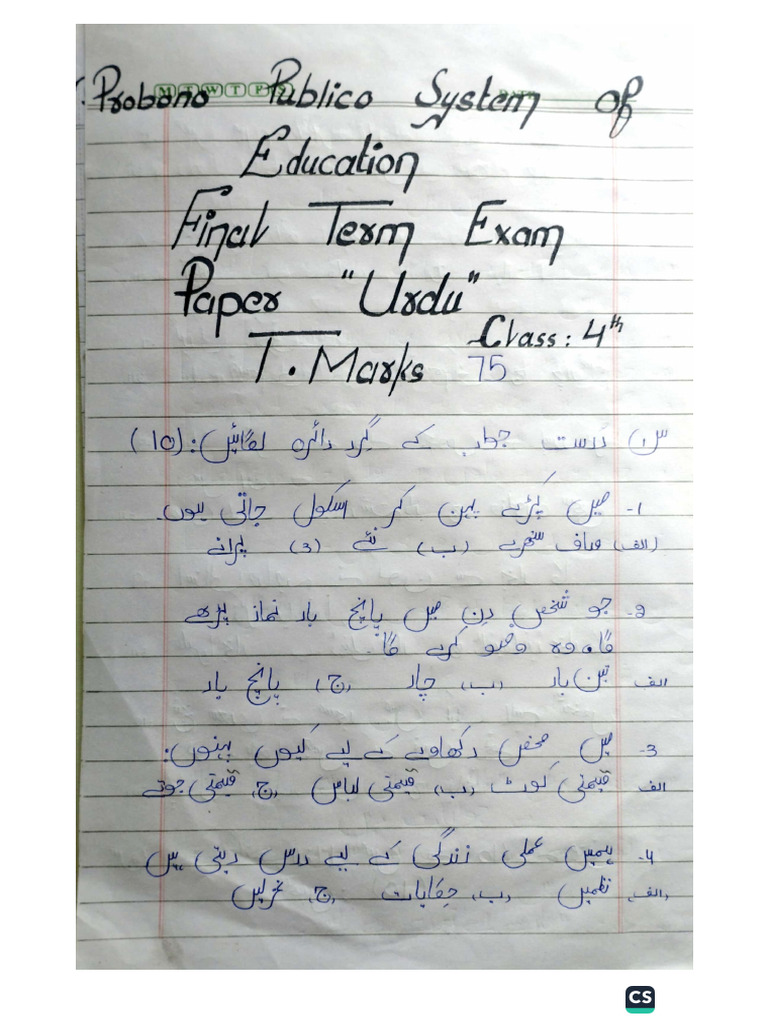 Probono Publico System of
Education
Final Term Exam
Paper "Urdu"
Class: 4th
T. Marks 75
س1 درست جواب کے گرد دائرہ لگائیں: (10)
1- میں کپڑے پہن کر اسکول جاتی ہوں۔
(الف) صاف ستھرے (ب) نئے (ج) پرانے
2- جو شخص دن میں پانچ بار نماز پڑھے
گا، وہ وضو کرے گا۔
الف تین بار (ب) چار (ج) پانچ بار
3- میں محض دکھاوے کے لیے کیوں پہنوں:
الف قیمتی کوٹ (ب) قیمتی لباس (ج) قیمتی جوتے
4- ہمیں عملی زندگی کے لیے درس دیتی ہیں
(الف) نظمیں (ب) حکایات (ج) غزلیں
CS